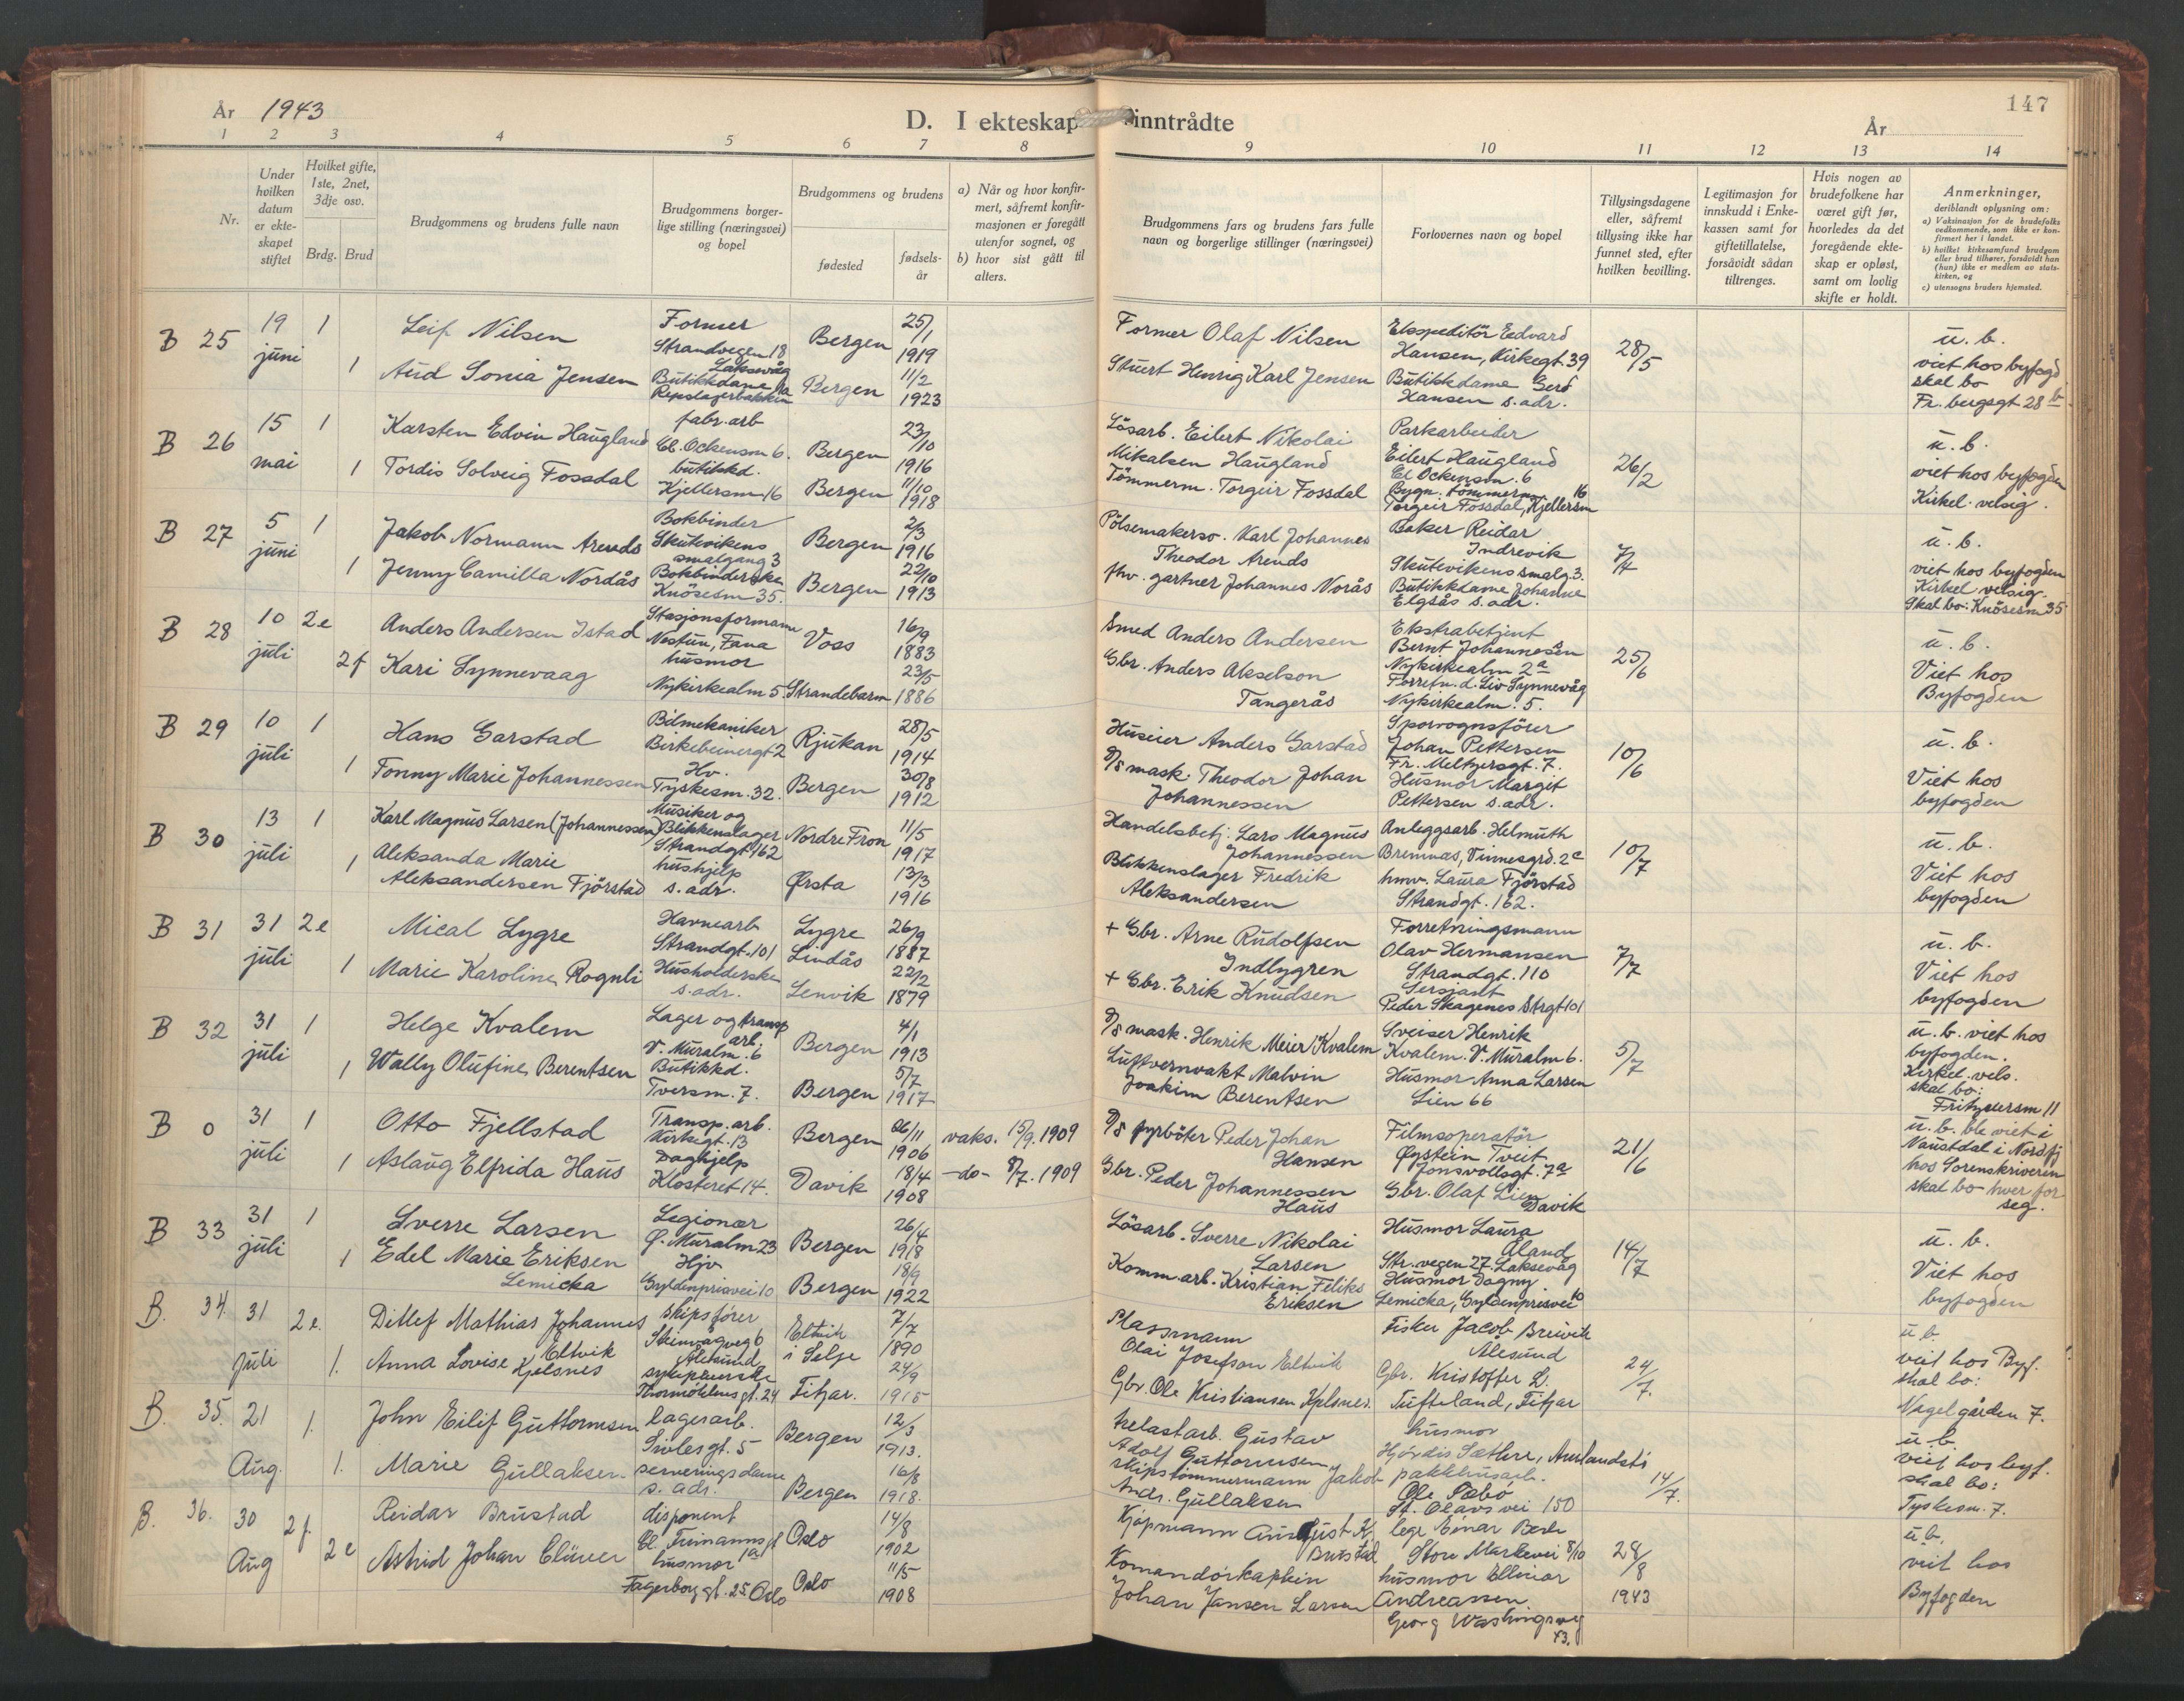 År 1943
D. I ekteskap inntrådte
År
147
1 2 3 4 5 6 7 8 9 10 11 12 13 14
Nr.
Under hvilken datum er ekteskapet stiftet
Hvilket gifte, 1ste, 2net, 3dje osv.
Brdg. Brud
Brudgommens og brudens fulle navn
Brudgommens borgerlige stilling (næringsvei) og bopel
Brudgommens og brudens
fødested
fødselsår
a) Når og hvor konfirmert, såfremt konfirmasjonen er foregått utenfor sognet, og
b) hvor sist gått til alters.
Brudgommens fars og brudens fars fulle navn og borgerlige stillinger (næringsvei)
Forlovernes navn og bopel
Tillysingsdagene eller, såfremt tillysing ikke har funnet sted, efter hvilken bevilling.
Legitimasjon for innskudd i Enkekassen samt for giftetillatelse, forsåvidt sådan tiltrenges.
Hvis nogen av brudefolkene har været gift før, hvorledes da det foregående ekteskap er opløst, samt om lovlig skifte er holdt.
Anmerkninger, deriblandt oplysning om:
a) Vaksinasjon for de brudefolks vedkommende, som ikke er konfirmert her i landet.
b) hvilket kirkesamfund brudgom eller brud tilhører, forsåvidt han (hun) ikke er medlem av statskirken, og
c) utensogns bruders hjemsted.
B 25 19 juni 1 Leif Nilsen Former Strandvegen 18 Laksevåg Bergen 25/1 1919
1 Aud Sonia Jensen Butikkdame Repslagerbakken Bergen 11/2 1923
Former Olaf Nilsen
Stuert Henrig Karl Jensen
Ekspeditör Edvard Hansen, Kirkegt. 39
Butikkdame Gerd Hansen s. adr.
28/5
u. b. viet hos byfogd skal bo Fr. bergsgt 28 b
B 26 15 mai 1 Karsten Edvin Haugland fabr. arb El. Ockensm 6. Bergen 23/10 1916
1 Tordis Solveig Fossdal butikkd. Kjellersm 16 Bergen 11/10 1918
Lösarb. Eilert Nikolai Mikalsen Haugland
Tömmerm. Torgeir Fossdal
Parkarbeider Eilert Haugland El Ockensm. 6
Bygn. tömmerm. Torgeir Fossdal, Kjellersm 16
26/2
u. b. viet hos byfogden Kirkel. velsig.
B 27 5 juni 1 Jakob Normann Arends Bokbinder Skutevikens smalgang 3 Bergen 2/3 1916
1 Jenny Camilla Nordås Bokbinderske Knösesm 35. Bergen 22/10 1913
Pölsemakersv. Karl Johannes Theodor Arends
fhv. gartner Johannes Norås
Baker Reidar Indrevik Skutevikens smalg. 3.
Butikkdame Johanne Elgsås s. adr.
7/4
u. b. viet hos byfogden Kirkel velsig. Skal bo: Knösesm 35
B 28 10 juli 2e Anders Andersen Istad Stasjonsformann Nestun, Fana Voss 16/9 1883
2f Kari Synnevaag husmor Nykirkealm 5 Strandebarm 23/5 1886
Smed Anders Andersen
Gbr. Anders Akselson Tangerås
Ekstrabetjent Bernt Johannesen Nykirkealm 2a
Forretn. d. Liv Synnevåg Nykirkealm. 5.
25/6
u. b. Viet hos Byfogden
B 29 10 juli 1 Hans Garstad Bilmekaniker Birkebeinergt 2 Rjukan 28/5 1914
1 Tonny Marie Johannessen Hv. Tyskesm. 32. Bergen 30/8 1912
Huseier Anders Garstad
D/S mask. Theodor Johan Johannessen
Sporvognsförer Johan Pettersen Fr. Meltzersgt. 7.
Husmor Margit Pettersen s. adr.
10/6
u. b. Viet hos byfogden
B 30 13 juli 1 Karl Magnus Larsen (Johannessen) Musiker og Blikkenslager Strandgt 162 Nordre Fron 11/5 1917
1 Aleksanda Marie Aleksandersen Fjörstad hushjelp s. adr. Ørsta 13/3 1916
Handelsbetj. Lars Magnus Johannessen
Blikkenslager Fredrik Aleksandersen
Anleggsarb. Helmuth Bremnes, Vinnesgrd. 2c
hmv. Laura Fjörstad Strandgt. 162.
10/7
u. b. Viet hos byfogden
B 31 31 juli 2e Mical Lygre Havnearb Strandgt. 101 Lygre Lindås 26/9 1887
1 Marie Karoline Rognli Husholderske s. adr. Lenvik 22/2 1879
+ Gbr. Arne Rudolfsen Indlygren
+ Gbr. Erik Knudsen
Forretningsmann Olav Hermansen Strandgt. 110
Sersjant Peder Skagenes Strgt 101
7/7
u. b. Viet hos byfogden
B 32 31 juli 1 Helge Kvalem Lager og transp arb. V. Muralm. 6 Bergen 4/1 1913
1 Wally Olufine Berentsen Butikkd. Tversm. 7. Bergen 5/7 1917
D/S mask. Henrik Meier Kvalem
Luftvernvakt Malvin Joakim Berentsen
Sveiser Henrik Kvalem. V. Muralm 6.
Husmor Anna Larsen Lien 66
5/7
u. b. viet hos byfogden. Kirkel. vels. skal bo: Fritznersm 11
B 0 31 juli 1 Otto Fjellstad Transp. arb. Kirkegt. 13 Bergen 26/11 1906 vaks. 15/9. 1909
1 Aslaug Elfrida Haus Daghjelp Klosteret 14. Davik 18/4 1908 -do- 8/7. 1909
D/S fyrböter Peder Johan Hansen
Gbr. Peder Johannessen Haus
Filmsoperatör Øystein Tveit Jonsvollsgt. 7a
Gbr. Olaf Lien Davik
21/6
u. b. ble viet i Naustdal i Nordfj hos Sorenskriveren skal bo hver for seg.
B 33 31 juli 1 Sverre Larsen Legionær Ø. Muralm 23 Bergen 26/4 1918
1 Edel Marie Eriksen Lemicka Hjv Gyldenprisvei 10 Bergen 18/9 1922
Lösarb. Sverre Nikolai Larsen
Komm. arb. Kristian Feliks Eriksen
Husmor Laura Åland Str. vegen 27. Laksevåg
Husmor Dagny Lemicka, Gyldenprisvei 10
14/7
u. b. Viet hos byfogden
B. 34. 31 Juli 2e. Ditlef Mathias Johannes Eltvik skipsförer Steinvågveg 6 Ålesund Eltvik i Selje 7/7 1890
1. Anna Lovise Kjelsnes sykepleierske Thormöhlensgt. 24 Fitjar. 24/9 1915
Plassmann Olai Josefson Eltvik
Gbr. Ole Kristiansen Kjelsnes.
Fisker Jacob Breivik Ålesund
Gbr. Kristoffer L. Tufteland, Fitjar
24/7.
u. b. viet hos Byf. skal bo: Nagelgården 7.
B. 35. 21 Aug. 1. John Eilif Guttormsen lagerarb. Sivlesgt. 5 Bergen 12/3 1913.
1. Marie Gullaksen. serveringsdame s. adr. Bergen 16/8 1918.
Helastarb. Gustav Adolf Guttormsen
skipstömmermann Jakob Andr. Gullaksen
husmor Hjördis Sæthre,
pakkhusarb. Ole Sæbö St. Olavs vei 150
14/7.
u. b. viet hos byf. skal bo: Tyskesm. 7.
B. 36. 30 Aug 2f. Reidar Brustad disponent Oslo 14/8 1902
2e Astrid Johan Clüver husmor Fagerborggt. 25 Oslo Oslo 11/5 1908
Kjöpmann August K. Brustad
Komandörkaptein Johan Jansen Larsen
lege Einar Store Markevei 8/10
husmor Ellinor Andreassen. Georg Washingsveg 43.
28/8 1943
u. b. viet hos Byfogden